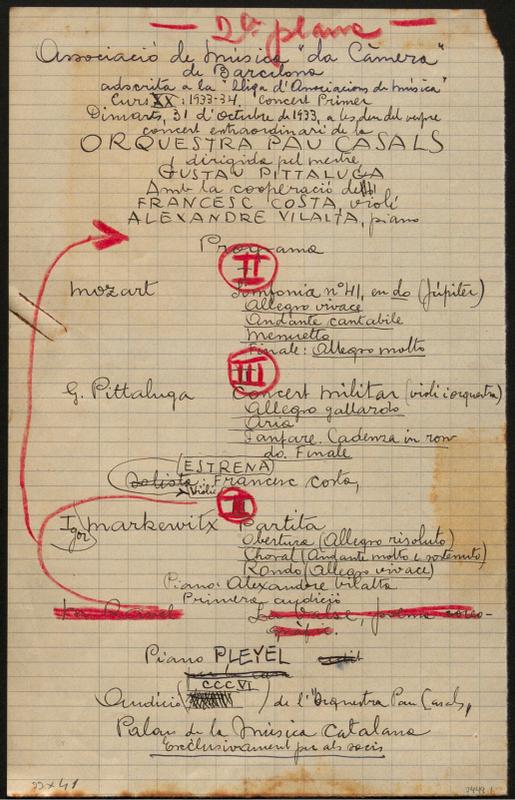 — 2ª plana —
Associació de música "da Càmera"
de Barcelona
adscrita a la "lliga d'Associacions de música"
Curs XX: 1933-34. Concert Primer
Dimarts, 31 d'octubre de 1933, a les deu del vespre
concert extraordinari de la
ORQUESTRA PAU CASALS
dirigida pel mestre
GUSTAU PITTALUGA
Amb la cooperació de
FRANCESC COSTA, violí
ALEXANDRE VILALTA, piano
Programa
II
Mozart Simfonia nº 41, en do (Júpiter)
Allegro vivace
Andante cantabile
Menuetto
Finale: Allegro molto
III
G. Pittaluga Concert militar (violí i orquestra)
Allegro gallardo
Aria
Fanfare. Cadenza in ron-
do. Finale
(ESTRENA)
Solista: Francesc Costa,
Violí
I
Igor Markewitx Partita
Obertura (Allegro risoluto)
Choral (Andante molto e sostenuto)
Rondo (Allegro vivace)
Piano: Alexandre Vilalta
Primera audició
Ravel La Valse, poema coreo-
gràfic.
Piano PLEYEL
CCCVI
Audició de l'"Orquestra Pau Casals,
Palau de la Música Catalana
Exclusivament per als socis
33 x 41